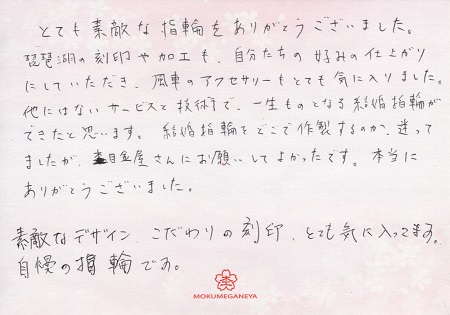 とても素敵な指輪をありがとうございました。
琵琶湖の刻印や加工も、自分たちの好みの仕上がり
にしていただき、風車のアクセサリーもとても気に入りました。
他にはないサービスと技術で、一生ものとなる結婚指輪が
できたと思います。結婚指輪をどこで作製するのか、迷って
ましたが、杢目金屋さんにお願いしてよかったです。本当に
ありがとうございました。
素敵なデザイン、こだわりの刻印、とても気に入ってます。
自慢の指輪です。
MOKUMEGANEYA